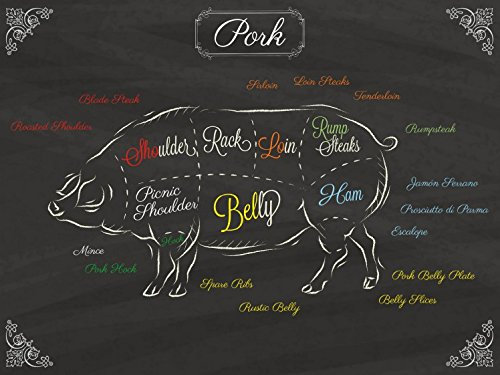 Pork
Sirloin
Loin Steaks
Tenderloin
Blade Steak
Roasted Shoulder
Rumpsteak
Shoulder
Rack
Loin
Rump
Steaks
Picnic
Shoulder
Belly
Ham
Jamón Serrano
Prosciutto di Parma
Escalope
Hock
Mince
Pork Hock
Spare Ribs
Rustic Belly
Pork Belly Plate
Belly Slices